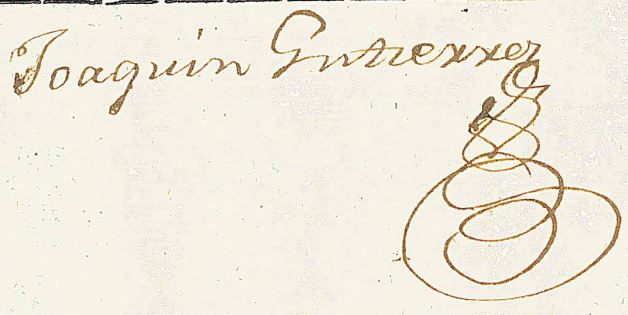 Joaquin Gutierrez